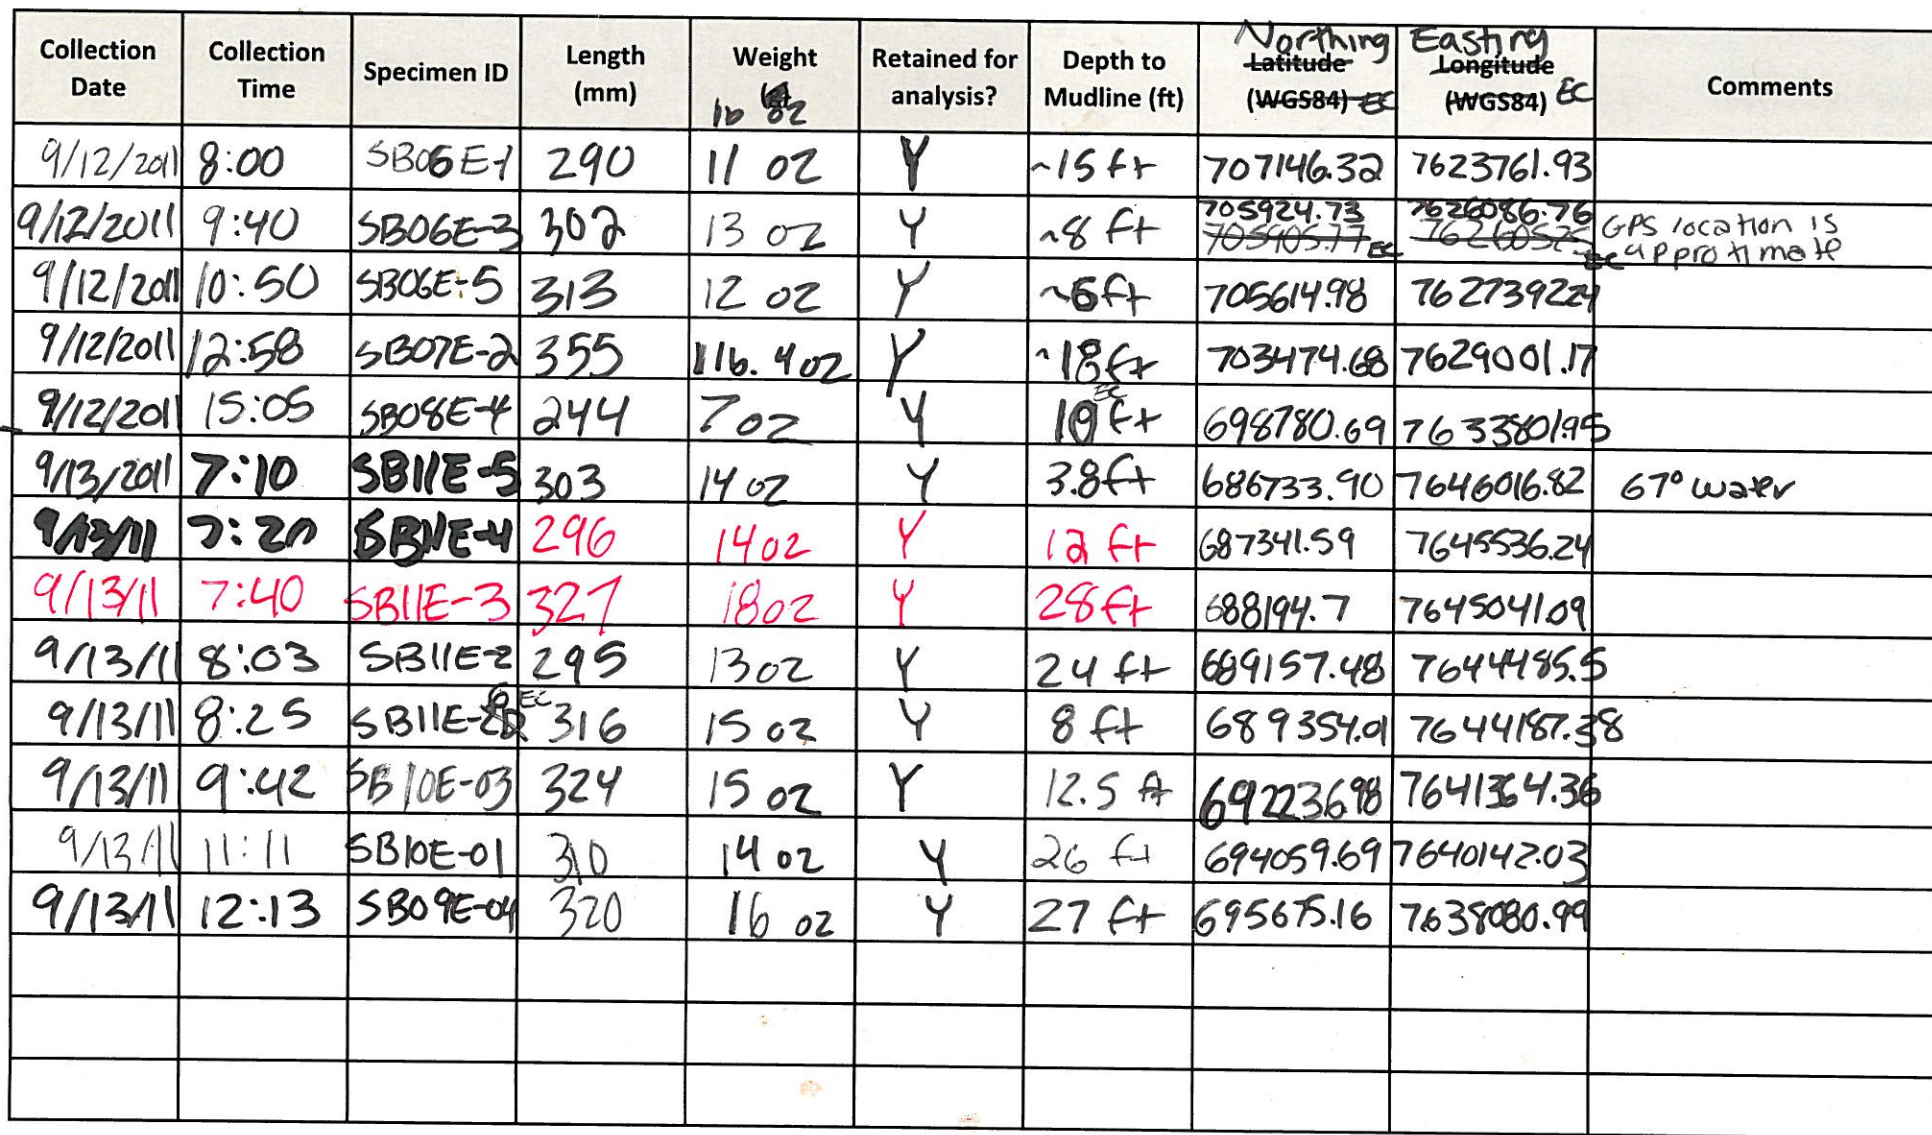 Collection Date | Collection Time | Specimen ID | Length (mm) | Weight lb oz | Retained for analysis? | Depth to Mudline (ft) | Northing Latitude (WGS84) EC | Easting Longitude (WGS84) EC | Comments
9/12/2011 | 8:00 | SB06E-1 | 290 | 11 oz | Y | ~15 ft | 707146.32 | 7623761.93
9/12/2011 | 9:40 | SB06E-3 | 302 | 13 oz | Y | ~8 ft | 705924.73 705905.77 EC | 7626086.76 EC | GPS location is approximate
9/12/2011 | 10:50 | SB06E-5 | 313 | 12 oz | Y | ~6 ft | 705614.98 | 7627392.24
9/12/2011 | 12:58 | SB07E-2 | 355 | 1lb. 4oz | Y | ~18 ft | 703474.68 | 7629001.17
9/12/2011 | 15:05 | SB08E-4 | 244 | 7 oz | Y | 10 ft EC | 698780.69 | 7633801.95
9/13/2011 | 7:10 | SB11E-5 | 303 | 14 oz | Y | 3.8ft | 686733.90 | 7646016.82 | 67° water
9/13/11 | 7:20 | SB11E-4 | 296 | 14oz | Y | 12 ft | 687341.59 | 7645536.24
9/13/11 | 7:40 | SB11E-3 | 327 | 18oz | Y | 28ft | 688194.7 | 7645041.09
9/13/11 | 8:03 | SB11E-2 | 295 | 13oz | Y | 24 ft | 689157.48 | 7644485.5
9/13/11 | 8:25 | EC | 316 | 15 oz | Y | 8 ft | 689354.01 | 7644187.38
9/13/11 | 9:42 | SB10E-03 | 324 | 15 oz | Y | 12.5 ft | 692236.98 | 7641364.36
9/13/11 | 11:11 | SB10E-01 | 310 | 14 oz | Y | 26 ft | 694059.69 | 7640142.03
9/13/11 | 12:13 | SB09E-04 | 320 | 16 oz | Y | 27 ft | 695675.16 | 7638080.99